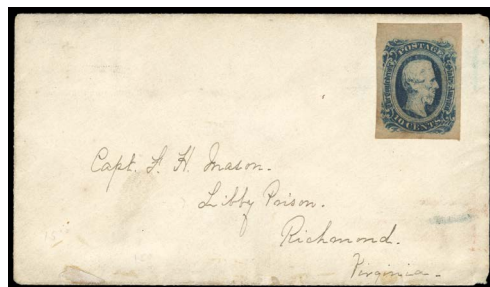 POSTAGE
10 CENTS
Capt. F. H. Mason.
Libby Prison.
Richmond.
Virginia.